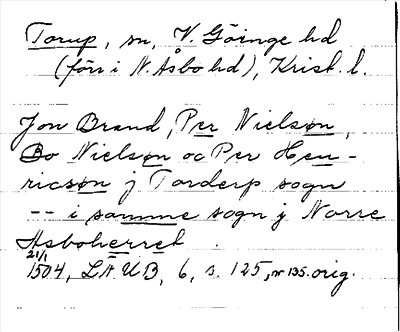 Torup, sn, V. Göinge hd
(förr i N. Åsbo hd), Krist. l.
Jon Brand, Per Nielsøn,
Bo Nielsøn oc Per Hen-
ricsøn j Torderp sogn
-- i samme sogn j Norre
Asboherret.
21/1
1504, LÄUB, 6, s. 125, nr 135. orig.